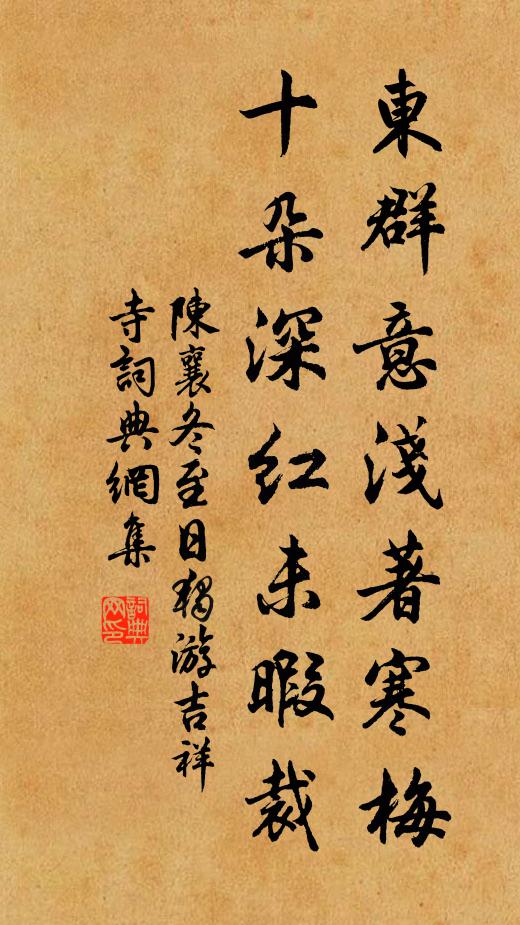 東群意淺著寒梅
十朵深紅未暇裁
陳襄冬至日獨游吉祥
寺詞典網集
詞典
网印